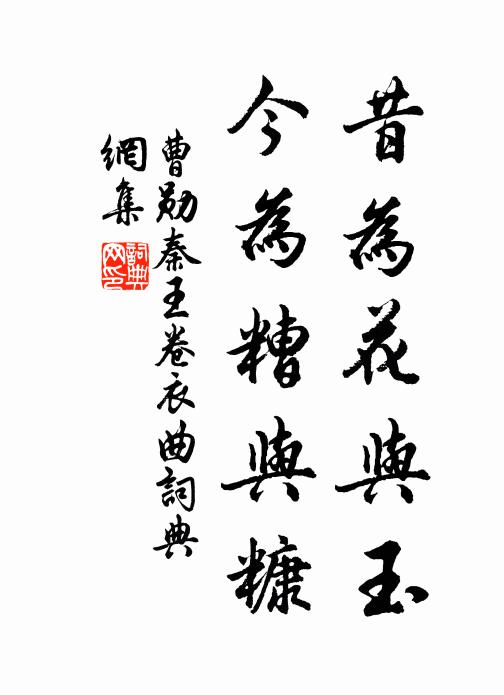 昔為花與玉
今為糟與糠
曹勛秦王卷衣曲詞典
網集
詞典网印